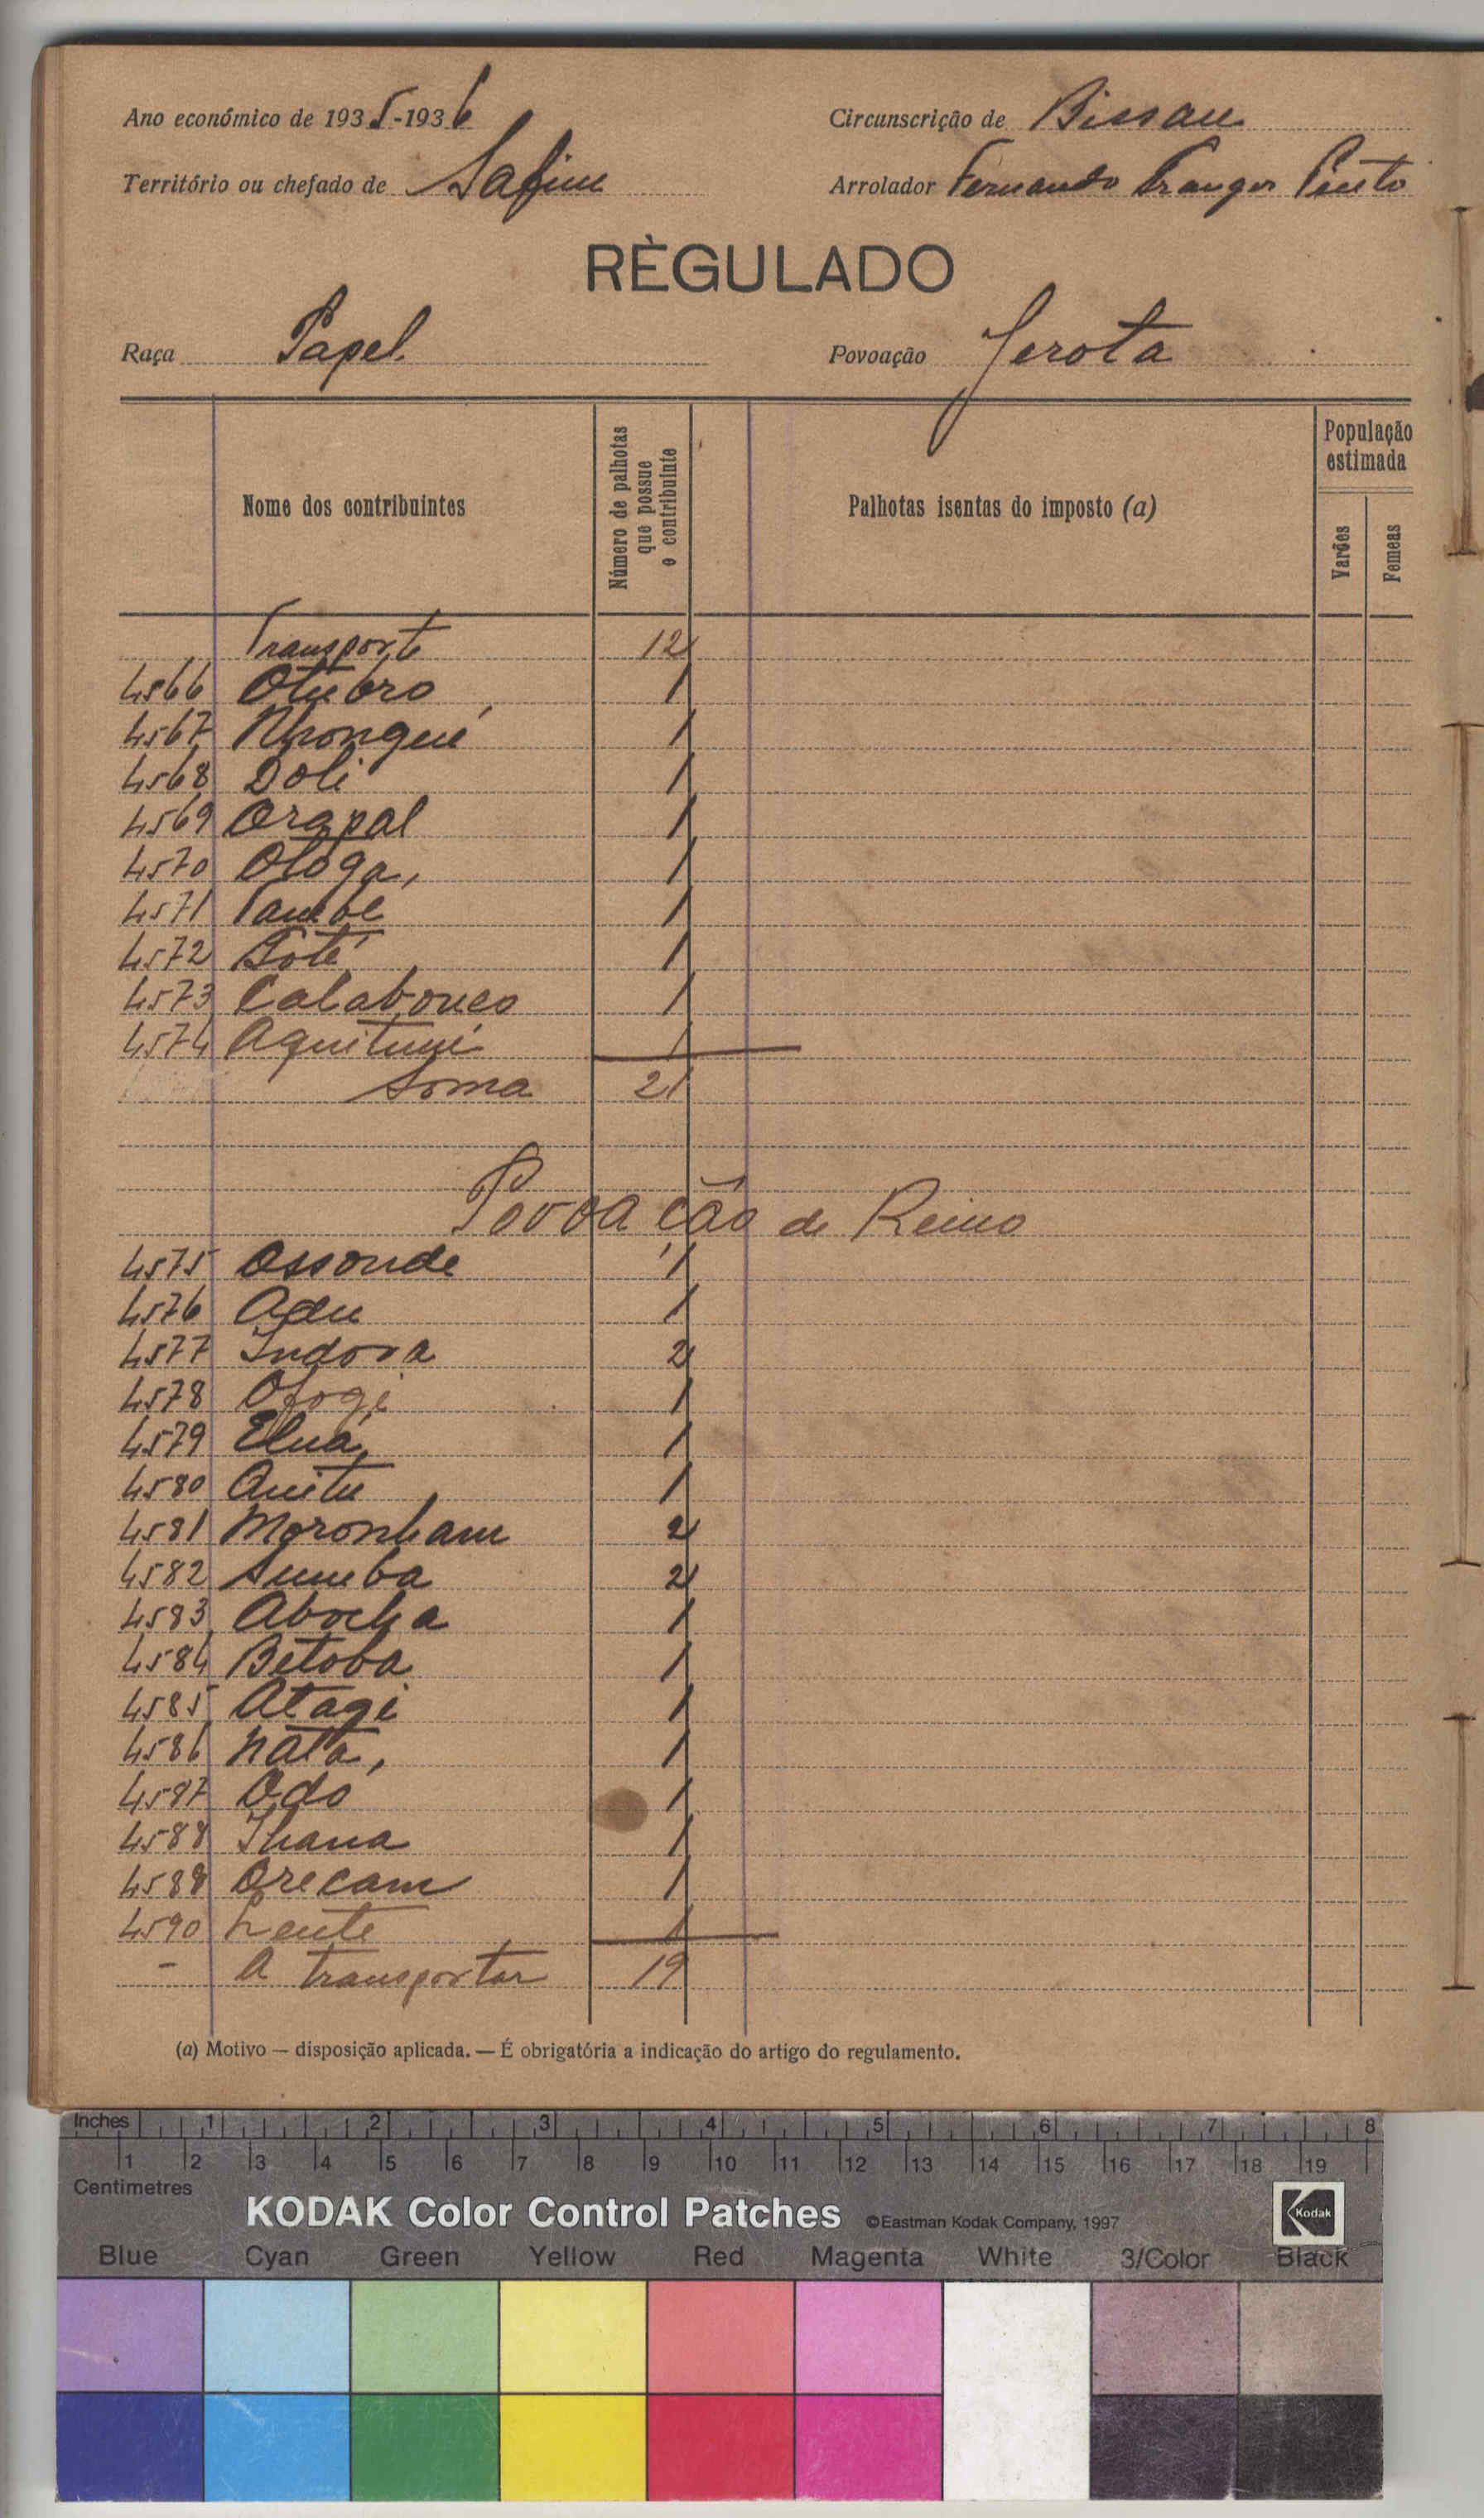 Ano económico de 1935-1936
Circunscrição de Bissau
Território ou chefado de Safim
Arrolador Fernando Pinto
RÈGULADO
Raça Papel
Povoação Jerota
Nome dos contribuintes
Número de palhotas que possue o contribuinte
Palhotas isentas do imposto (a)
População estimada
Varões
Femeas
Transporte 12
4566 Otubro 1
4567 Nhongué 1
4568 Doli 1
4569 Orapal 1
4570 Ológa, 1
4571 Tambe 1
4572 Toté 1
4573 Calabouço 1
4574 1
Soma 21
Povoação de Reino
4575 Ossonde 1
4576 Adu 1
4577 Indova 2
4578 Ofogi 1
4579 Eluá 1
4580 Quitu 1
4581 Moronham 2
4582 Sumba 2
4583 Abocha 1
4584 Bitoba 1
4585 Atagi 1
4586 Nata, 1
4587 Odo 1
4588 Ihana 1
4588 Orecam 1
4590 Lente 1
- A transportar 19
(a) Motivo — disposição aplicada. — É obrigatória a indicação do artigo do regulamento.
Inches 1 2 3 4 5 6 7 8
1 2 3 4 5 6 7 8 9 10 11 12 13 14 15 16 17 18 19
Centimetres
KODAK Color Control Patches ©Eastman Kodak Company, 1997 Kodak
Blue Cyan Green Yellow Red Magenta White 3/Color Black